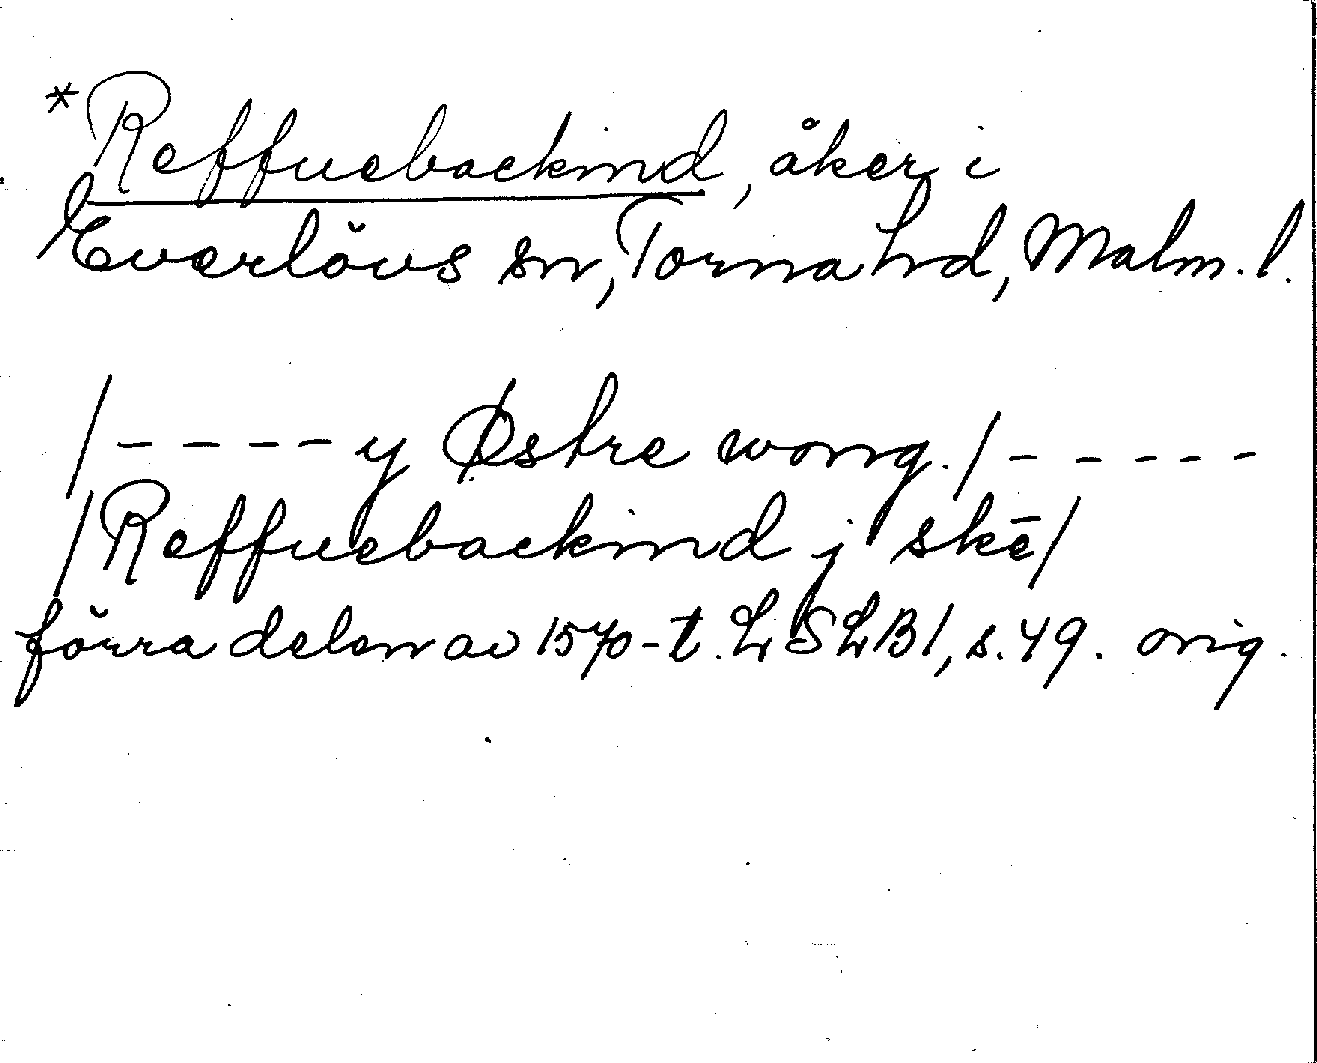 *Reffuebackind, åker i
Everlövs sn, Torna hrd, Malm. l.
/- - - - y Østre wong./- - - - -
/Reffuebackind j skē/
förra delen av 1570-t. LSLB1, s. 49. orig.